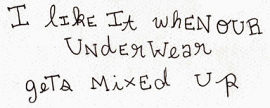 I lIkE It whEN OUR
UNdERWEar
geTs MixEd UP